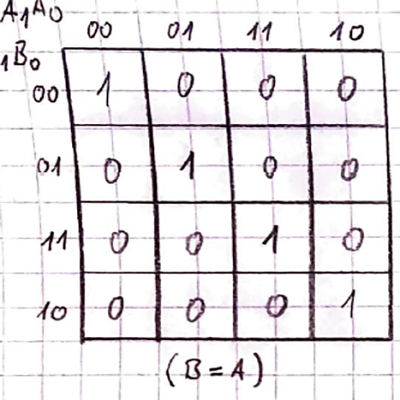 A₁A₀
00 01 11 10
₁B₀
00 1 0 0 0
01 0 1 0 0
11 0 0 1 0
10 0 0 0 1
(B=A)